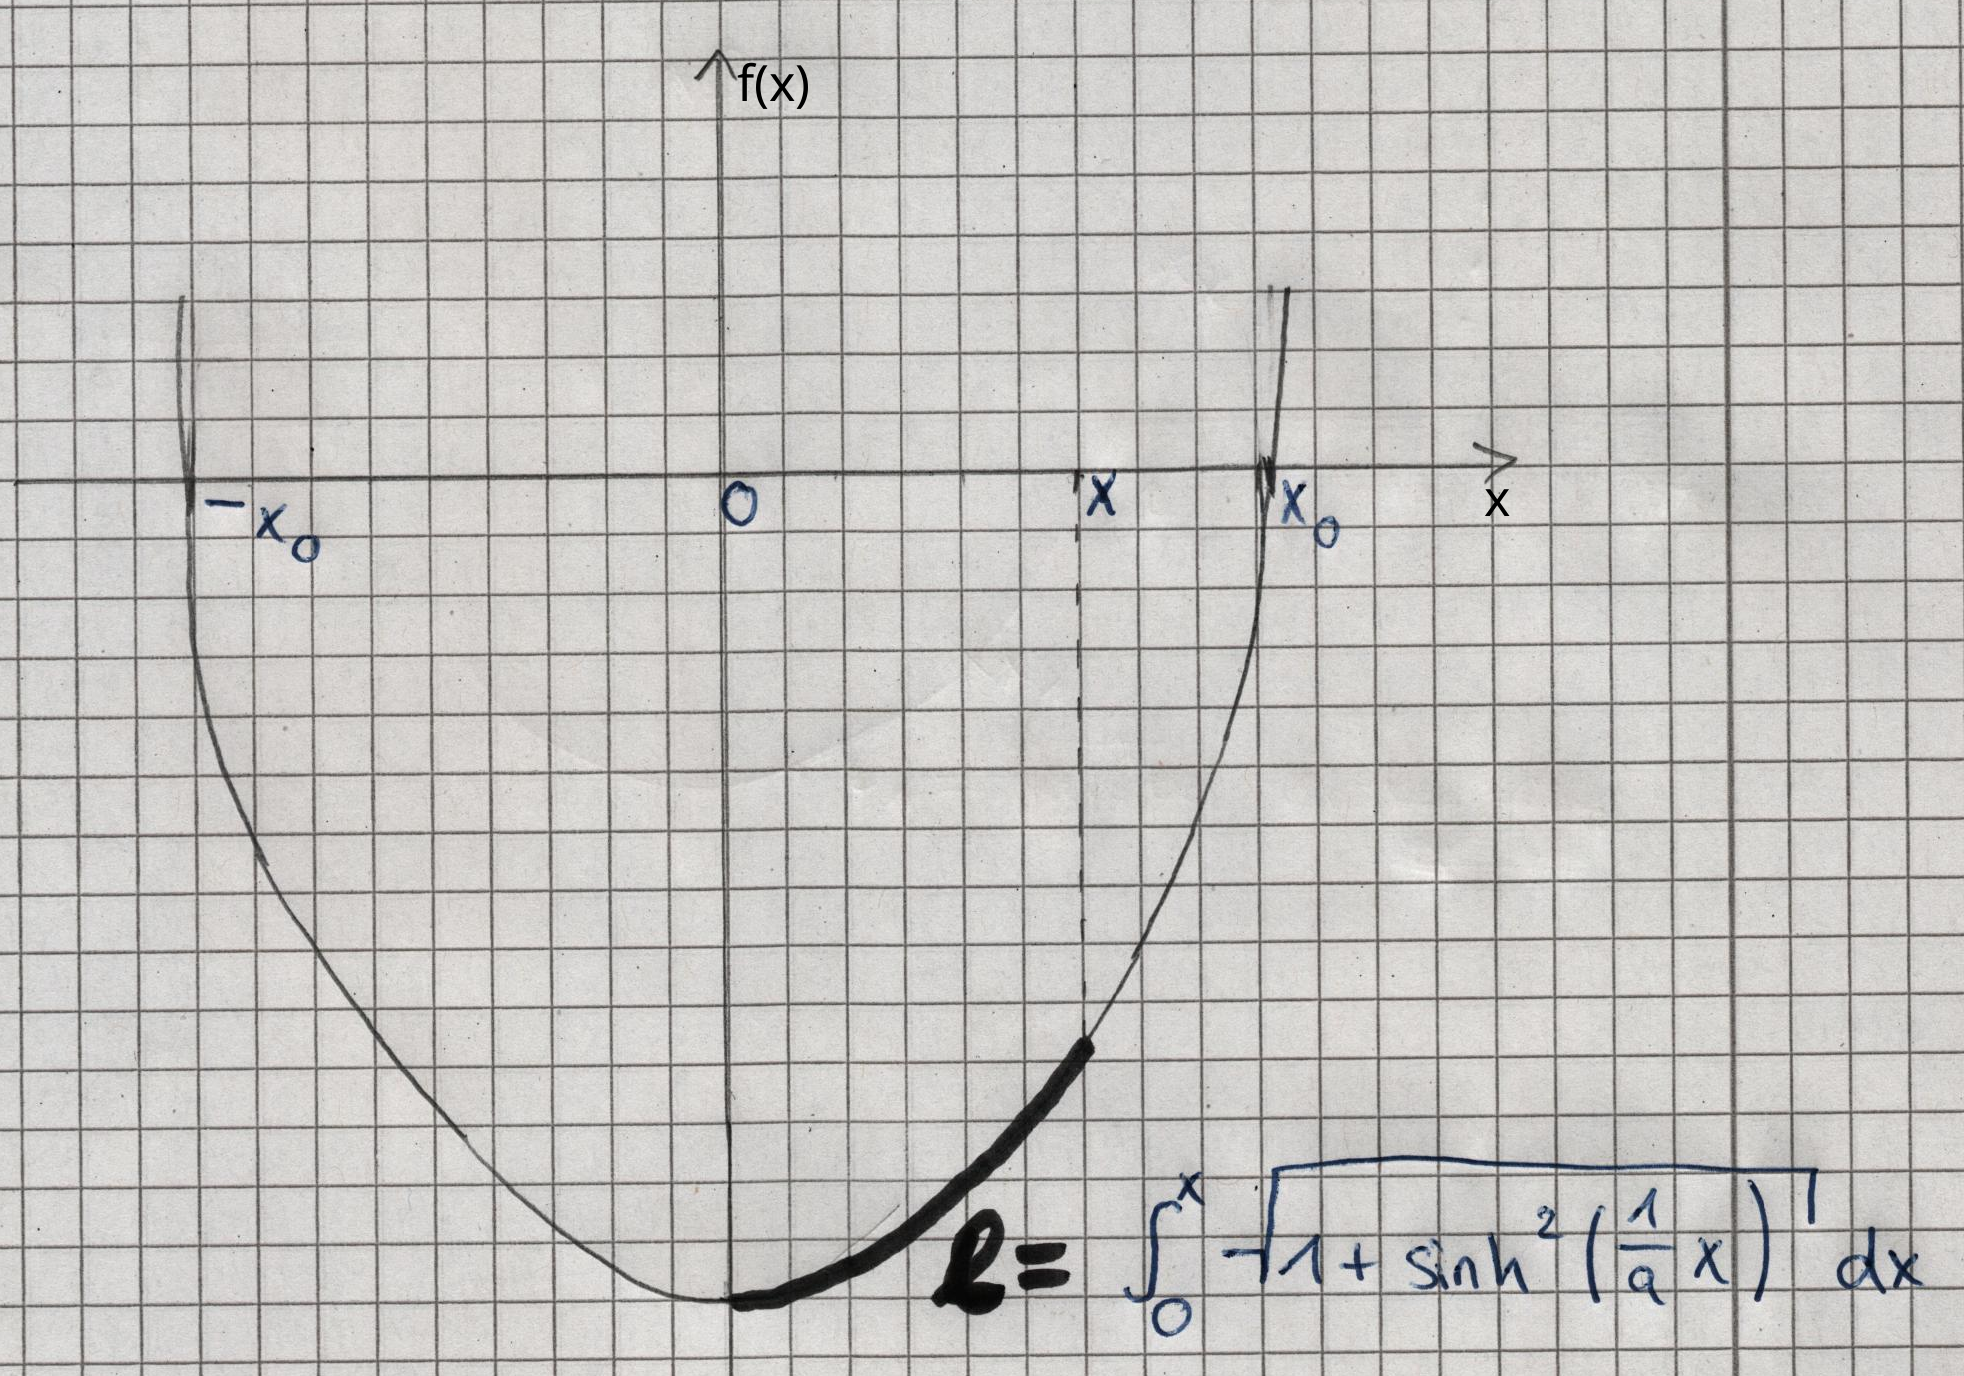 f(x)
-x₀ 0 x x₀ x
ℓ = ∫₀ˣ √(1 + sinh² (1/a x)) dx